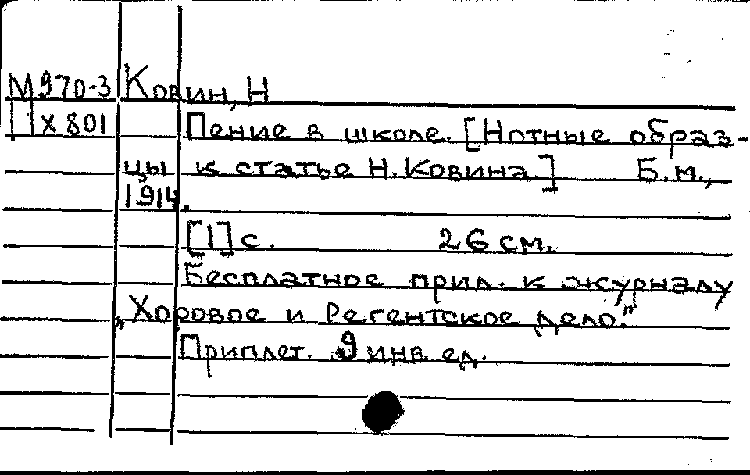 М970-3 Ковин, Н
Х801 Пение в школе. [Нотные образ-
цы к статье Н. Ковина.] Б.м.,
1914.
[1] с. 26 см.
Бесплатное прил. к журналу
„Хоровое и Регентское дело."
Приплет. 9 инв. ед.